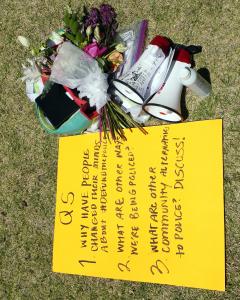 QS
1 WHY HAVE PEOPLE
CHANGED THEIR MINDS
ABOUT #DEFUNDTHEPOLICE
2 WHAT ARE OTHER WAYS
WE'RE BEING POLICED?
3. WHAT ARE OTHER
COMMUNITY ALTERNATIVES
TO POLICE? DISCUSS!